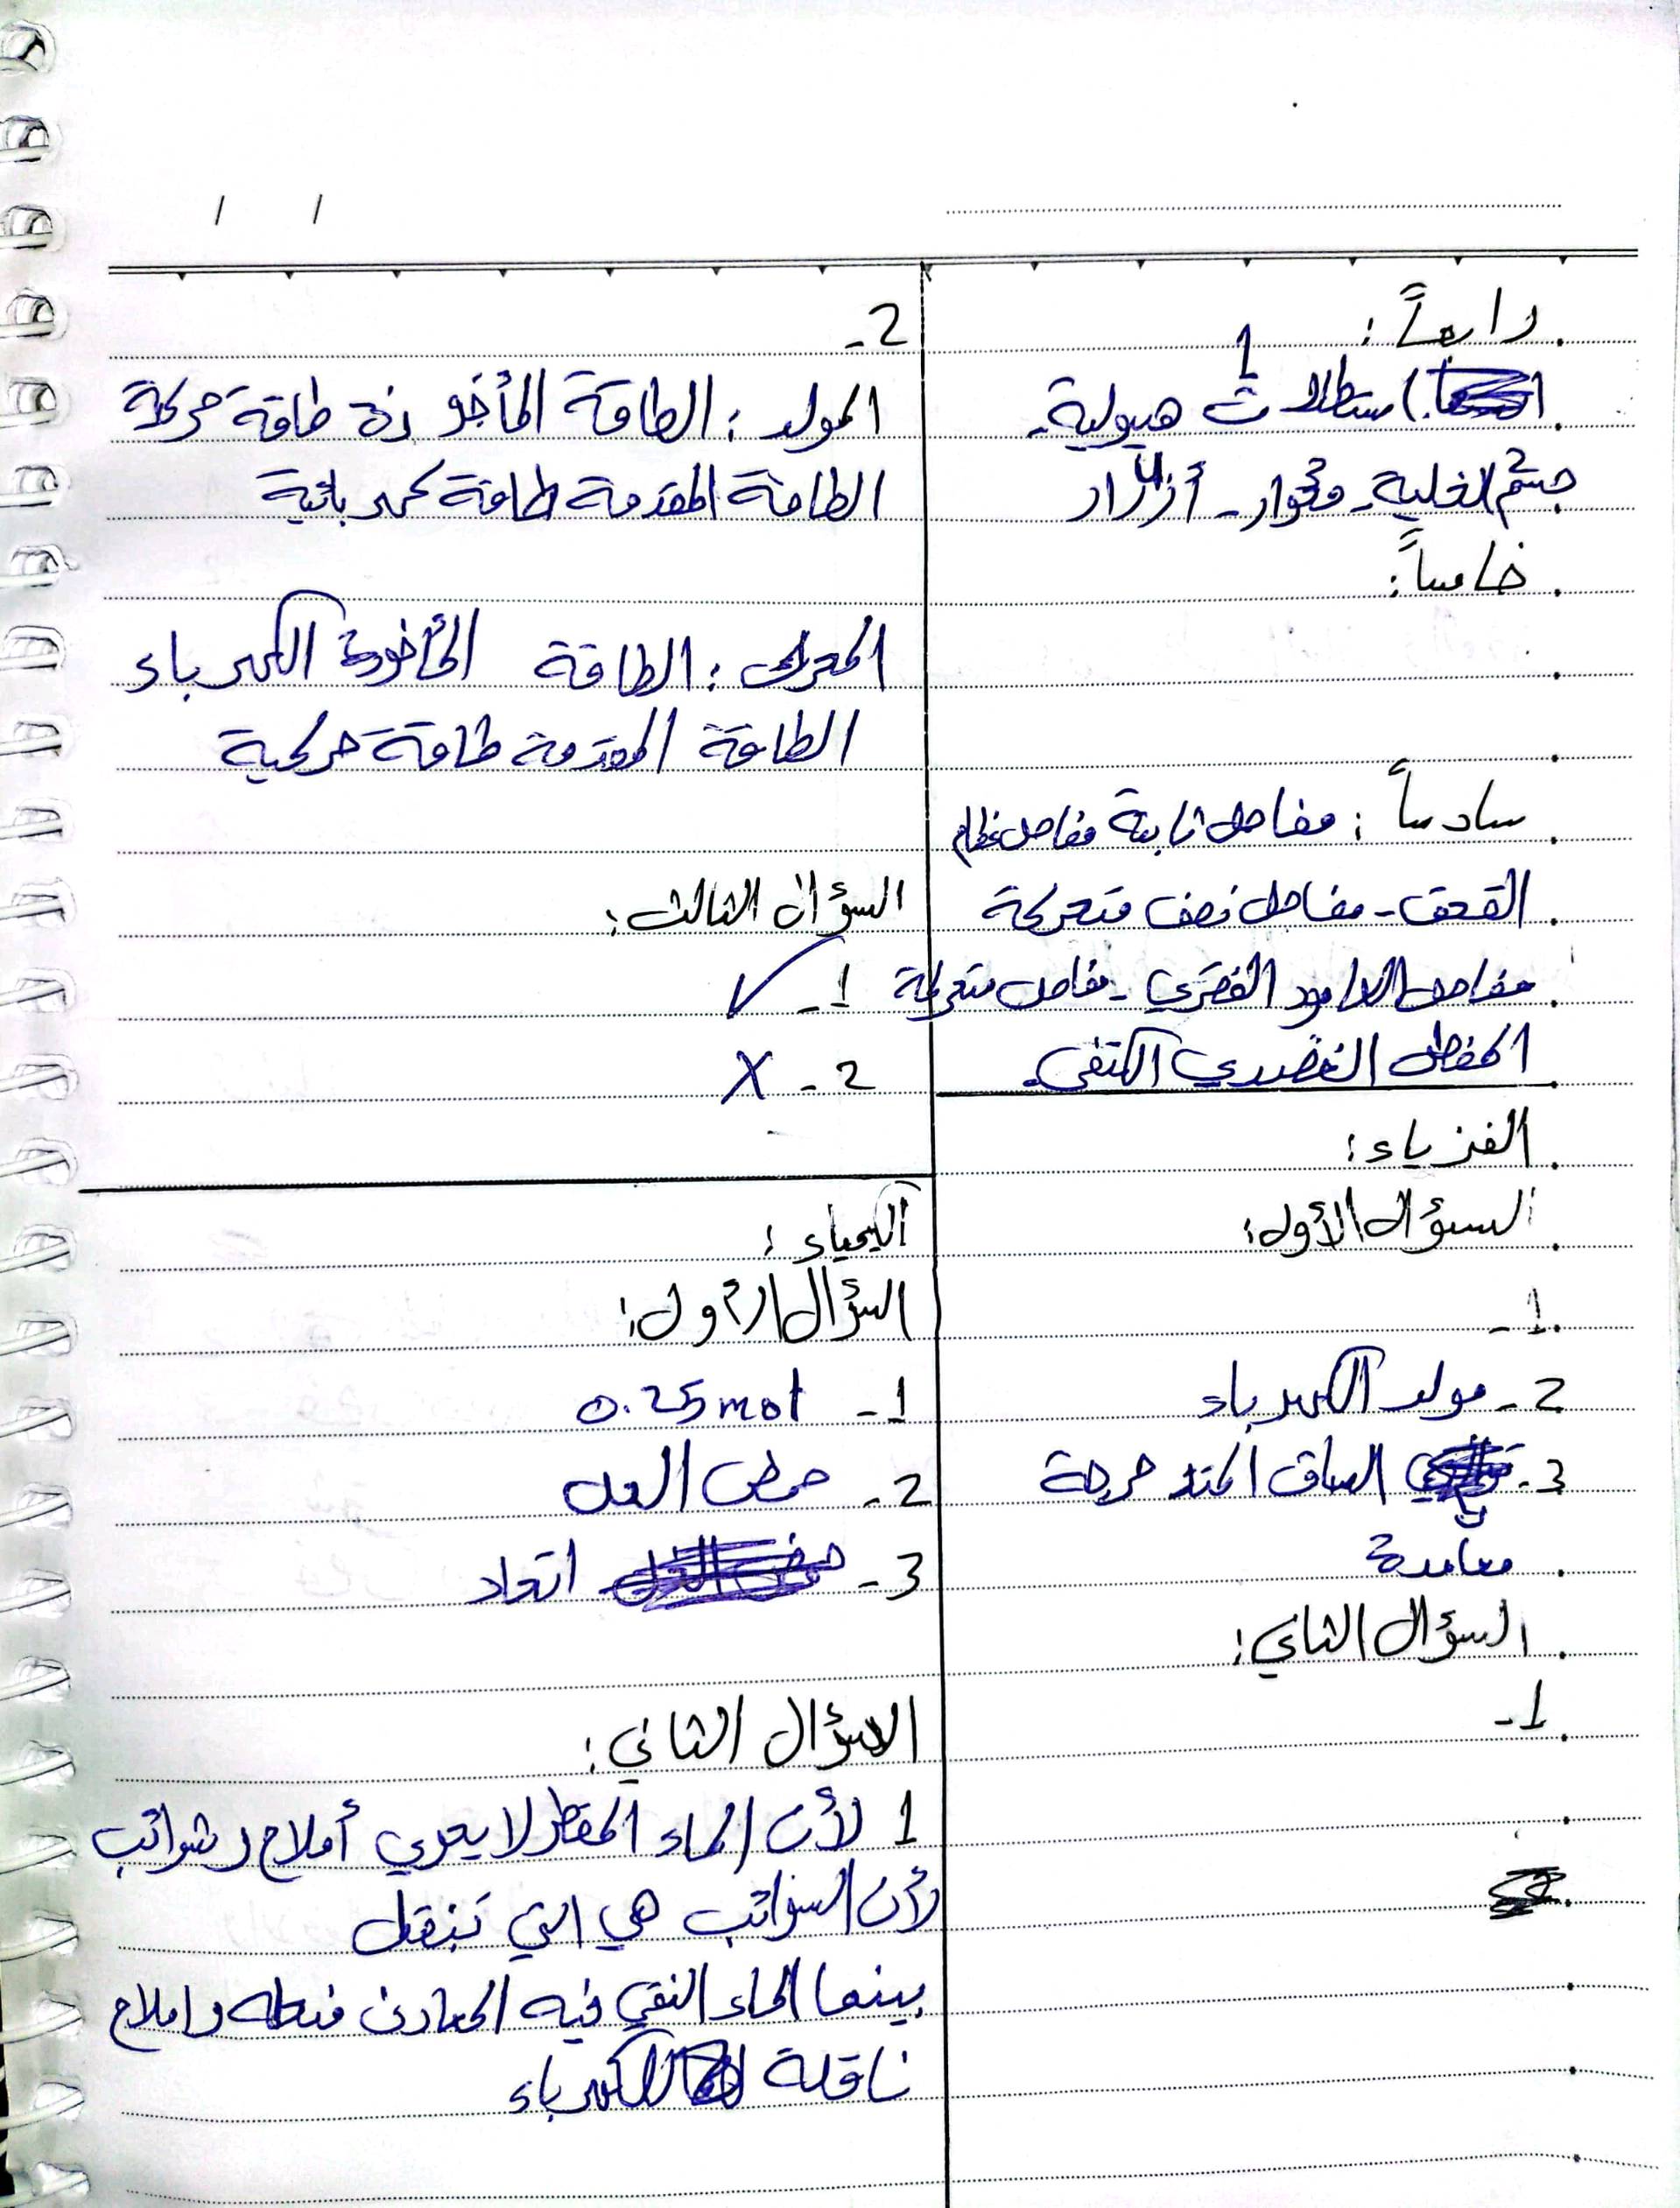 رابعاً:
1
استطالات هيولية-
2 3 4
جسم الخلية - محوار - أزرار
خامساً:
سادساً: مفاصل ثابتة مفاصل عظام
القحف - مفاصل نصف متحركة
مفاصل العامود الفقري - مفاصل متحركة
المفصل العضدي الكتفي.
الفزياء:
السؤال الأول:
1-
2- مولد الكهرباء
3- الساق المتدحرجة
معامدة
السؤال الثاني:
1-
2-
المولد: الطاقة المأخوذة طاقة حركية
الطاقة المقدمة طاقة كهربائية
المحرك: الطاقة المأخوذة الكهرباء
الطاقة المقدمة طاقة حركية
السؤال الثالث:
1- ✓
2- X
الكيمياء:
السؤال الأول:
1- 0.25 mol
2- حمض
3- اتحاد
السؤال الثاني:
1 لأن الماء المقطر لا يحوي أملاح وشوائب
لأن الشوائب هي التي تنقل
بينما الماء النقي فيه المعادن واملاح
ناقلة للكهرباء